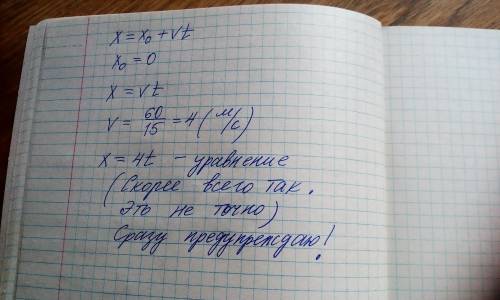 x = x₀ + vt
x₀ = 0
x = vt
v = 60/15 = 4 (м/с)
x = 4t – уравнение
(Скорее всего так.
Это не точно)
Сразу предупреждаю!